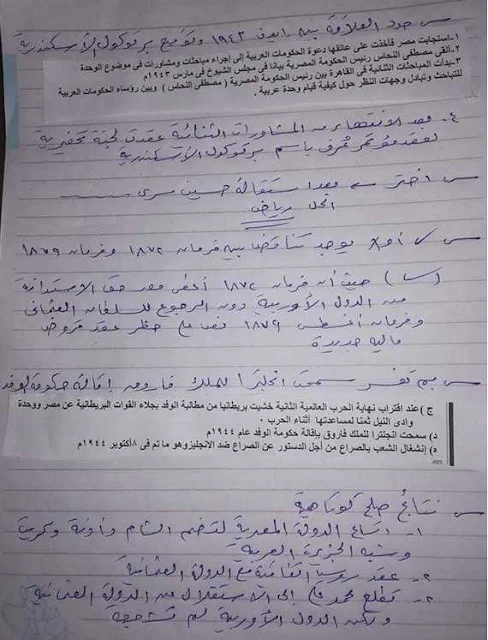 س حدد العلاقة بين إيدن ١٩٤٣ وتوقيع بروتوكول الأسكندرية
١-استجابت مصر فأخذت على عاتقها دعوة الحكومات العربية إلى إجراء مباحثات ومشاورات فى موضوع الوحدة
٢-ألقى مصطفى النحاس رئيس الحكومة المصرية بيانا فى مجلس الشيوخ فى مارس ١٩٤٣م
٣-بدأت المباحثات الثنائية فى القاهرة بين رئيس الحكومة المصرية ( مصطفى النحاس ) وبين رؤساء الحكومات العربية
للتباحث وتبادل وجهات النظر حول كيفية قيام وحدة عربية .
٤- بعد الانتهاء من المشاورات الثنائية عقدت لجنة تحضيرية
لعقد مؤتمر عُرف باسم بروتوكول الأسكندرية
س اختر ← بعد استقالة حسين سرى ......
الحل رياض
س لا يوجد تناقض بين فرمان ١٨٧٢ وفرمان ١٨٧٩
حيث أن فرمان ١٨٧٢ أعطى مصر حق الاستدانة
من الدول الأوربية دون الرجوع للسلطان العثمانى
وفرمان أغسطس ١٨٧٩ نص على حظر عقد قروض
مالية جديدة
س بم تفسر سمحت انجلترا للملك فاروق إقالة حكومة الوفد
ج ) عند اقتراب نهاية الحرب العالمية الثانية خشيت بريطانيا من مطالبة الوفد بجلاء القوات البريطانية عن مصر ووحدة
وادى النيل ثمنا لمساعدتها أثناء الحرب .
د) سمحت انجلترا للملك فاروق بإقالة حكومة الوفد عام ١٩٤٤م
ه) إنشغال الشعب بالصراع من أجل الدستور عن الصراع ضد الانجليز وهو ما تم فى ٨ أكتوبر ١٩٤٤م
س نتائج صلح كوتاهية
١- اتساع الدولة المصرية لتضم الشام وأدنة وكريت
وشبه الجزيرة العربية
٢- عقد روسيا اتفاقية مع الدولة العثمانية
٣- تطلع محمد على إلى الاستقلال عن الدولة العثمانية
ولكن الدول الأوربية لم تشجعه